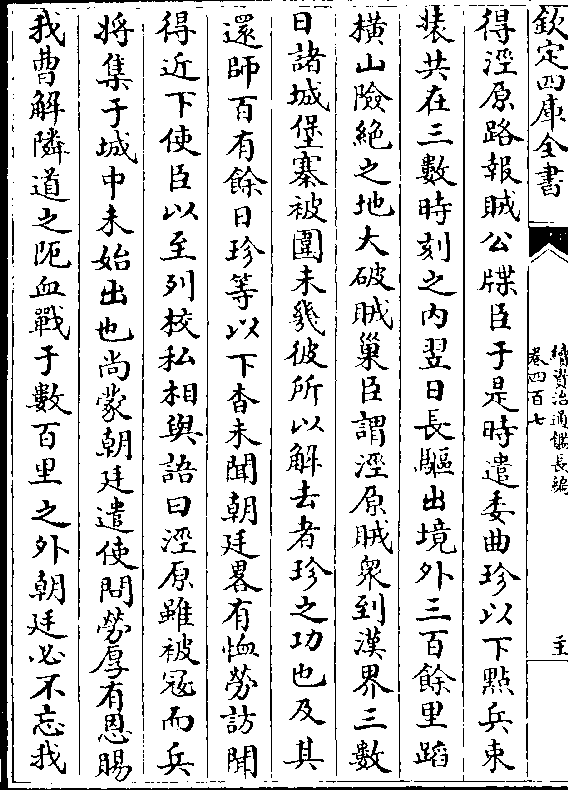 欽定四庫全書
續資治通鑑長編
卷四百七
得涇原路報賊公牒臣于是時遣委曲珍以下點兵束
裝共在三數時刻之内翌日長驅出境外三百餘里蹈
橫山險絶之地大破賊巢臣謂涇原賊衆到漢界三數
日諸城堡寨被圍未幾彼所以解去者珍之功也及其
還師百有餘日珍等以下杳未聞朝廷畧有恤勞訪聞
得近下使臣以至列校私相與語曰涇原雖被冦而兵
將集于城中未始出也尚蒙朝廷遣使問勞厚有恩賜
我曹解隣道之阨血戰于數百里之外朝廷必不忘我